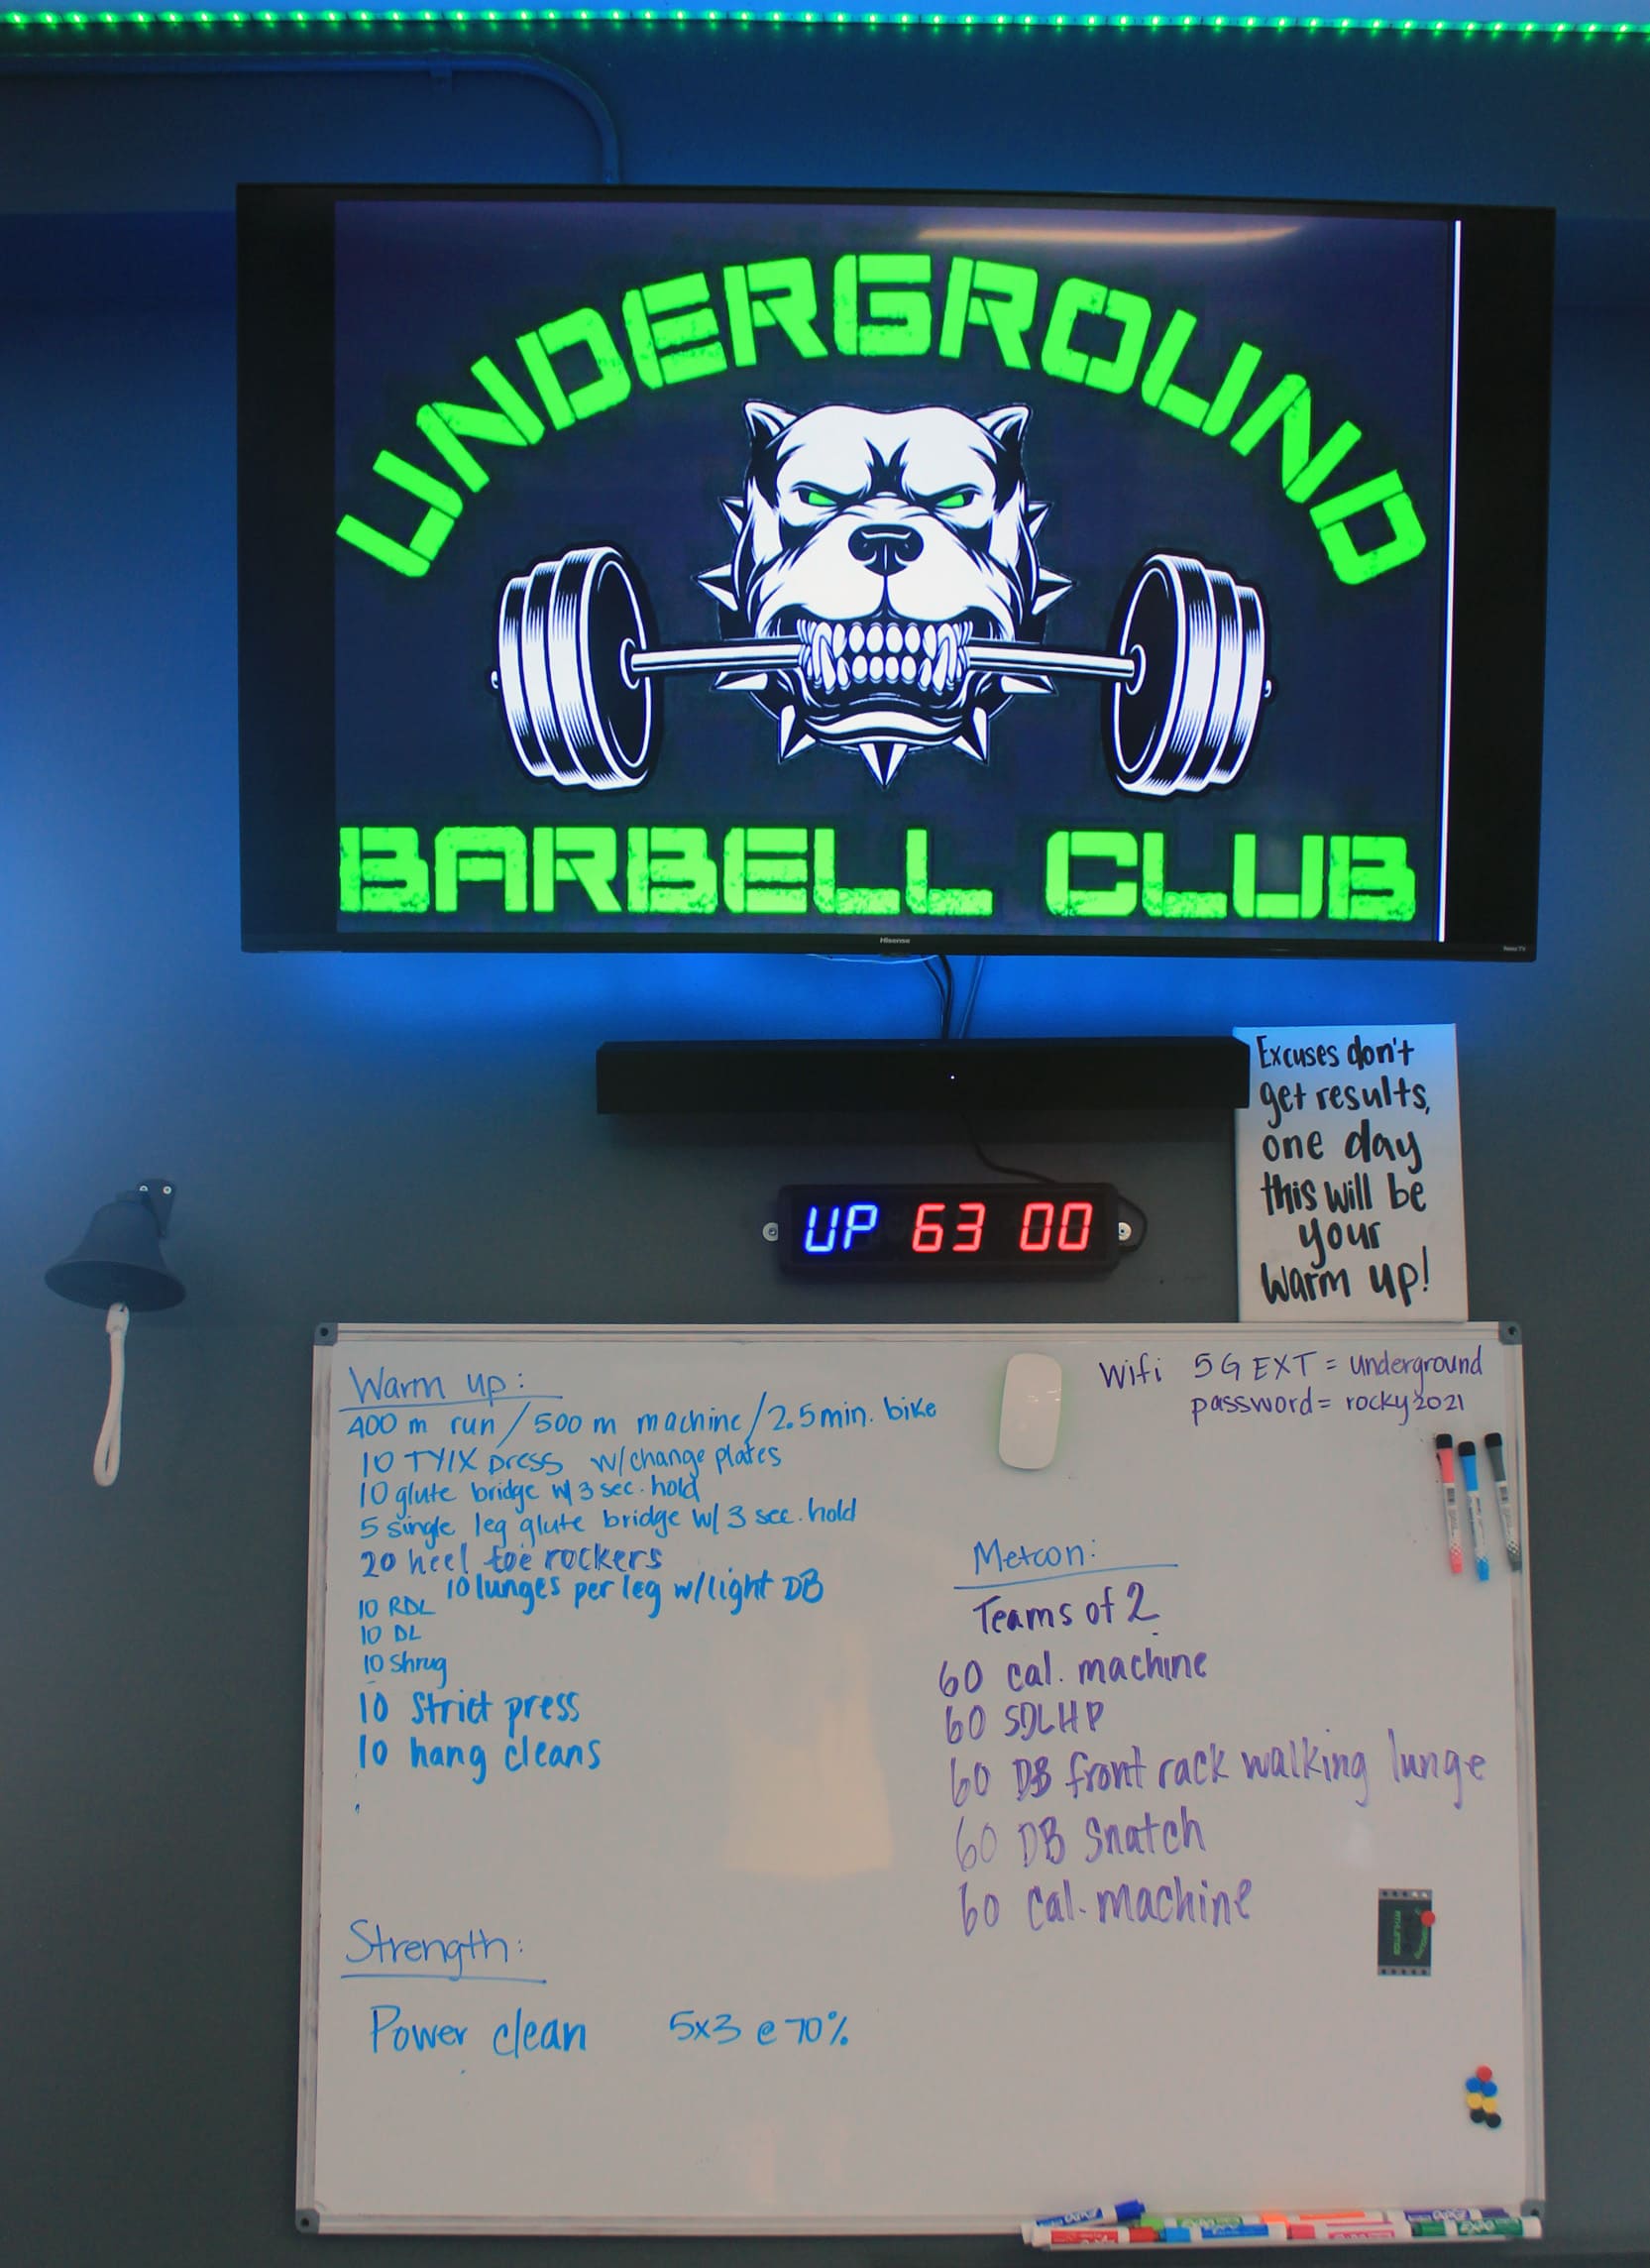 UNDERGROUND
BARBELL CLUB
Hisense
Roku TV
Excuses don't
get results,
one day
this will be
your
warm up!
UP 63 00
Warm up:
400 m run / 500 m machine / 2.5 min. bike
10 TYIX press w/ change plates
10 glute bridge w/ 3 sec. hold
5 single leg glute bridge w/ 3 sec. hold
20 heel toe rockers
10 lunges per leg w/ light DB
10 RDL
10 DL
10 Shrug
10 Strict press
10 hang cleans
Strength:
Power clean 5x3 @ 70%
Wifi 5G EXT = underground
password = rocky2021
Metcon:
Teams of 2
60 cal. machine
60 SDLHP
60 DB front rack walking lunge
60 DB Snatch
60 Cal. machine
ATHLETICS
EXPO